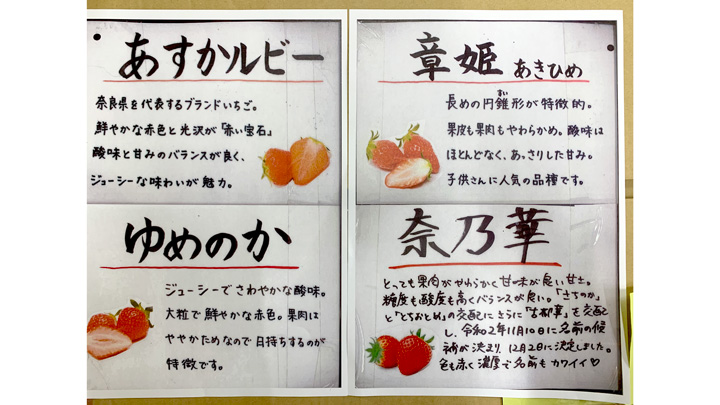 あすかルビー
奈良県を代表するブランドいちご。
鮮やかな赤色と光沢が「赤い宝石」
酸味と甘みのバランスが良く、
ジューシーな味わいが魅力。
章姫 あきひめ
長めの円錐形が特徴的。
すい
果皮も果肉もやわらかめ。酸味は
ほとんどなく、あっさりした甘み。
子供さんに人気の品種です。
ゆめのか
ジューシーでさわやかな酸味。
大粒で鮮やかな赤色。果肉は
ややかためなので日持ちするのが
特徴です。
奈乃華
とっても果肉がやわらかく甘味が良い
糖度も酸度も高くバランスが良い。「さちのか」
と「とちおとめ」の交配にさらに「古都華」を交配
し、令和2年11月10日に名前の候
補が決まり、12月2日に決定しました。
色も赤く濃厚で名前もカワイイ♡